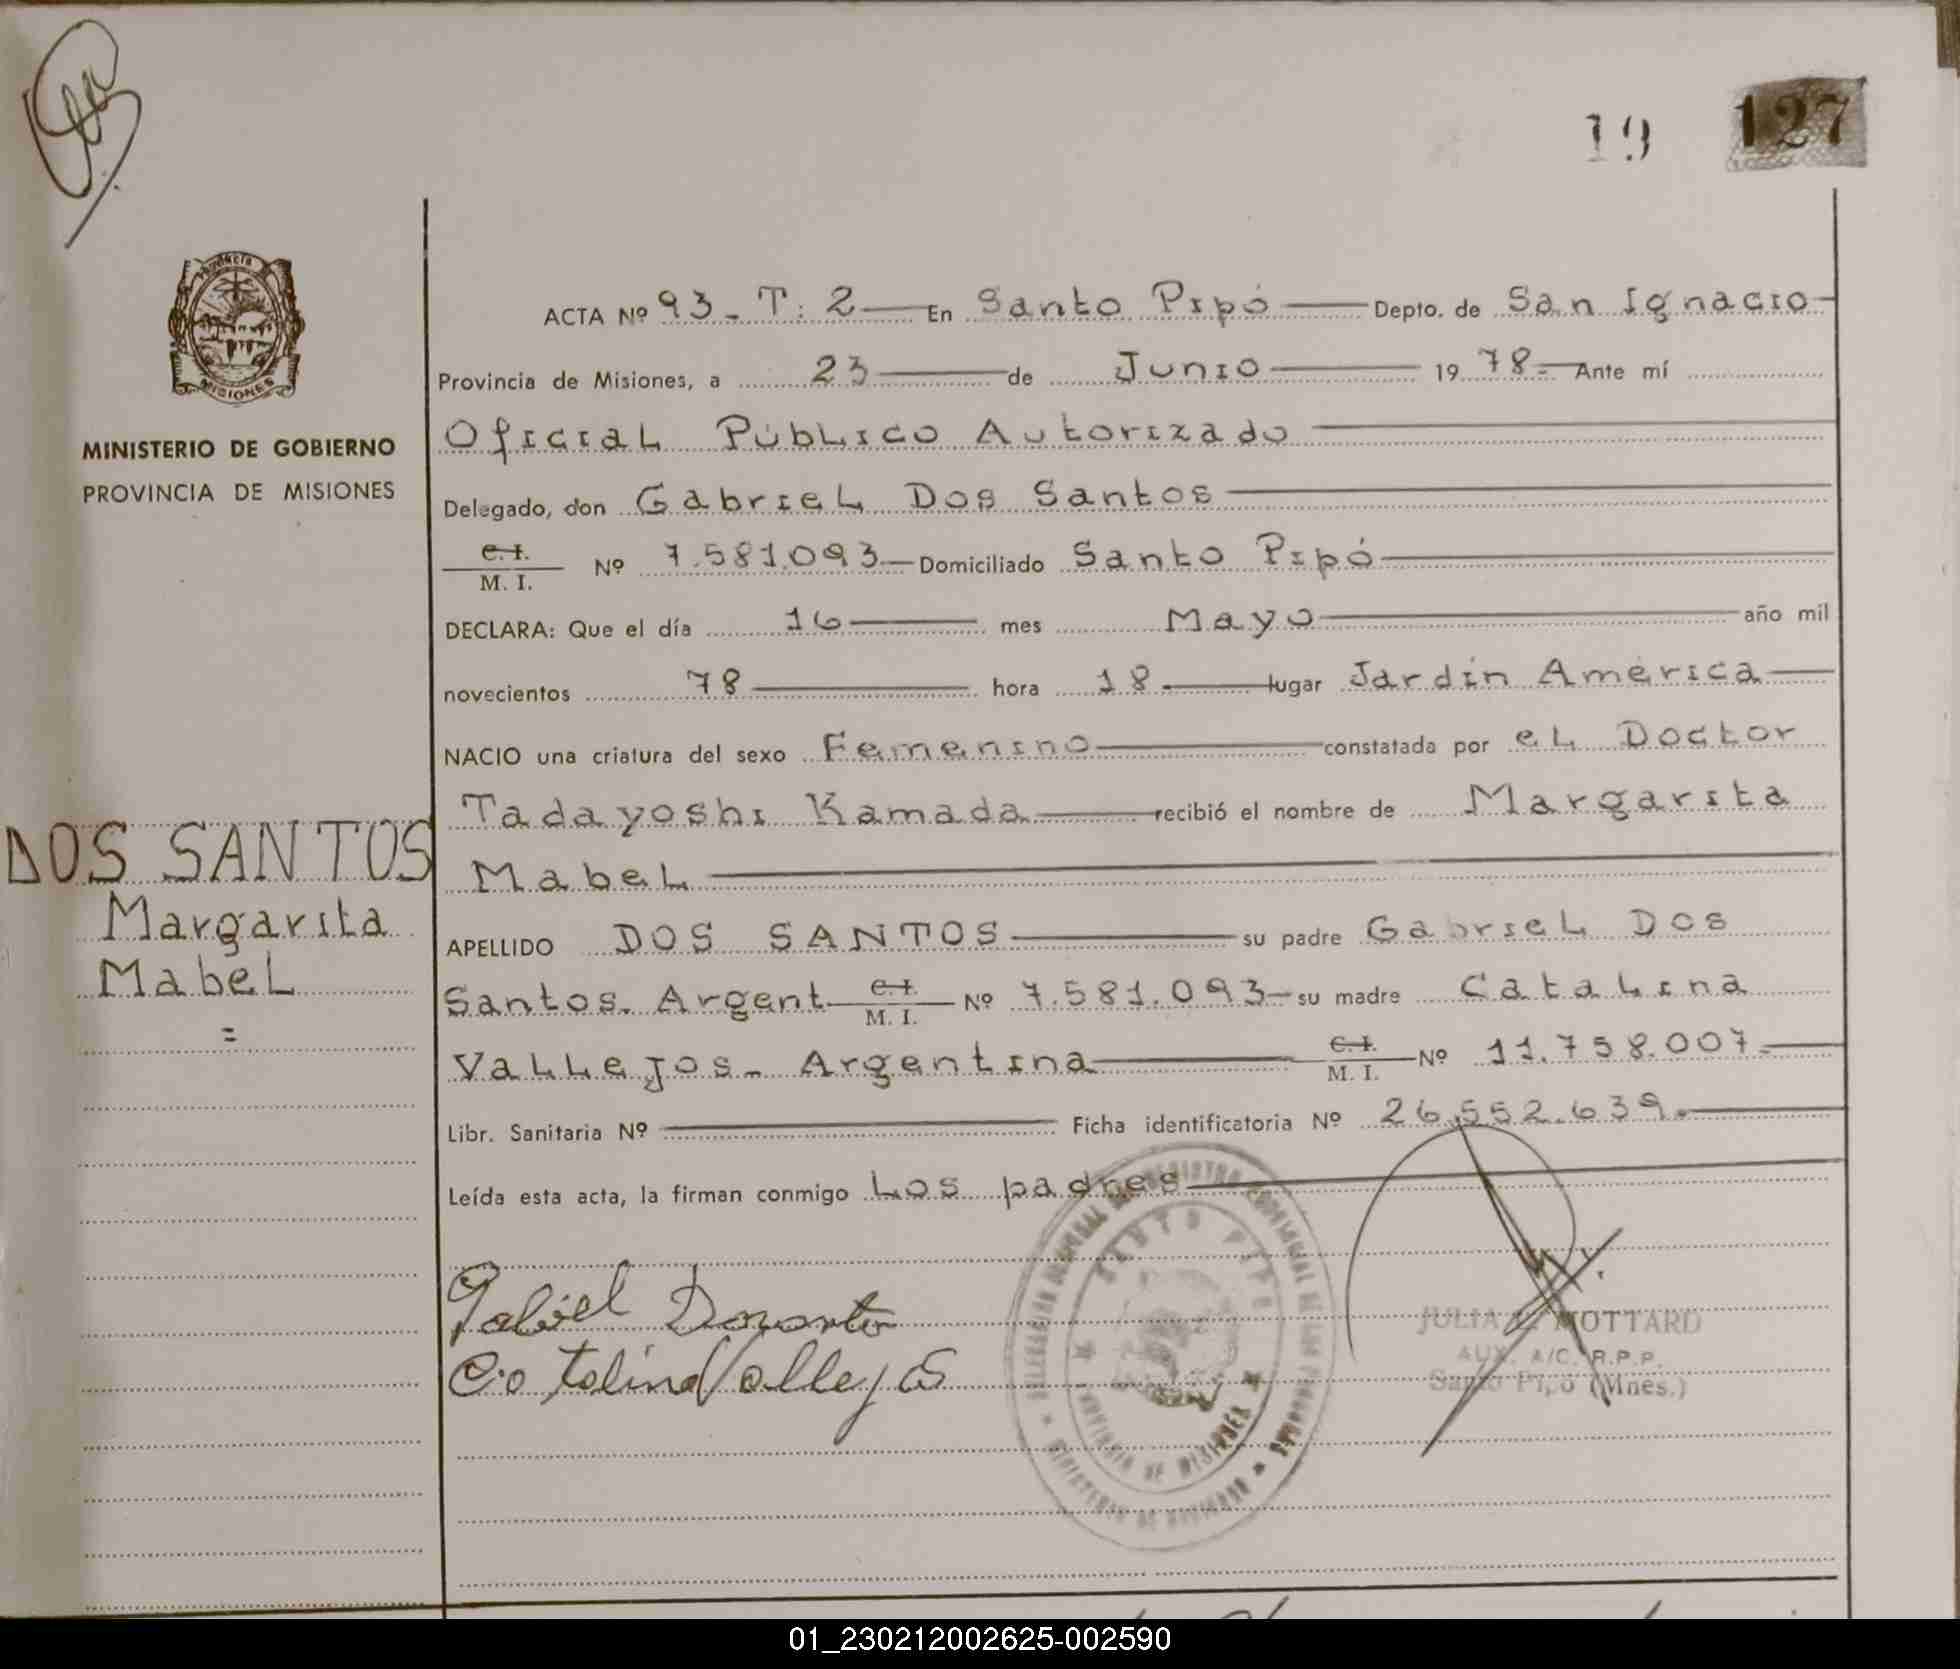 19 127
PROVINCIA
MISIONES
MINISTERIO DE GOBIERNO
PROVINCIA DE MISIONES
DOS SANTOS
Margarita
Mabel
=
ACTA Nº 93 - T: 2 — En Santo Pipó — Depto. de San Ignacio
Provincia de Misiones, a 23 — de Junio — 19 78.- Ante mí
Oficial Público Autorizado
Delegado, don Gabriel Dos Santos
C. I. / M. I. Nº 7.581.093 — Domiciliado Santo Pipó
DECLARA: Que el día 16 — mes Mayo — año mil
novecientos 78 — hora 18 — lugar Jardín América
NACIO una criatura del sexo Femenino — constatada por el Doctor
Tadayoshi Kamada — recibió el nombre de Margarita
Mabel
APELLIDO DOS SANTOS — su padre Gabriel Dos
Santos. Argent. C. I. / M. I. Nº 7.581.093 — su madre Catalina
Vallejos - Argentina — C. I. / M. I. Nº 11.758.007.-
Libr. Sanitaria Nº — Ficha identificatoria Nº 26.552.639.-
Leída esta acta, la firman conmigo los padres
Gabriel Dosanto
Catalina Vallejos
SANTO PIPO
PROVINCIA DE MISIONES
MINISTERIO DE GOBIERNO
JULIA MOTTARD
AUX. A/C. R.P.P.
Santo Pipó (Mnes.)
01_230212002625-002590